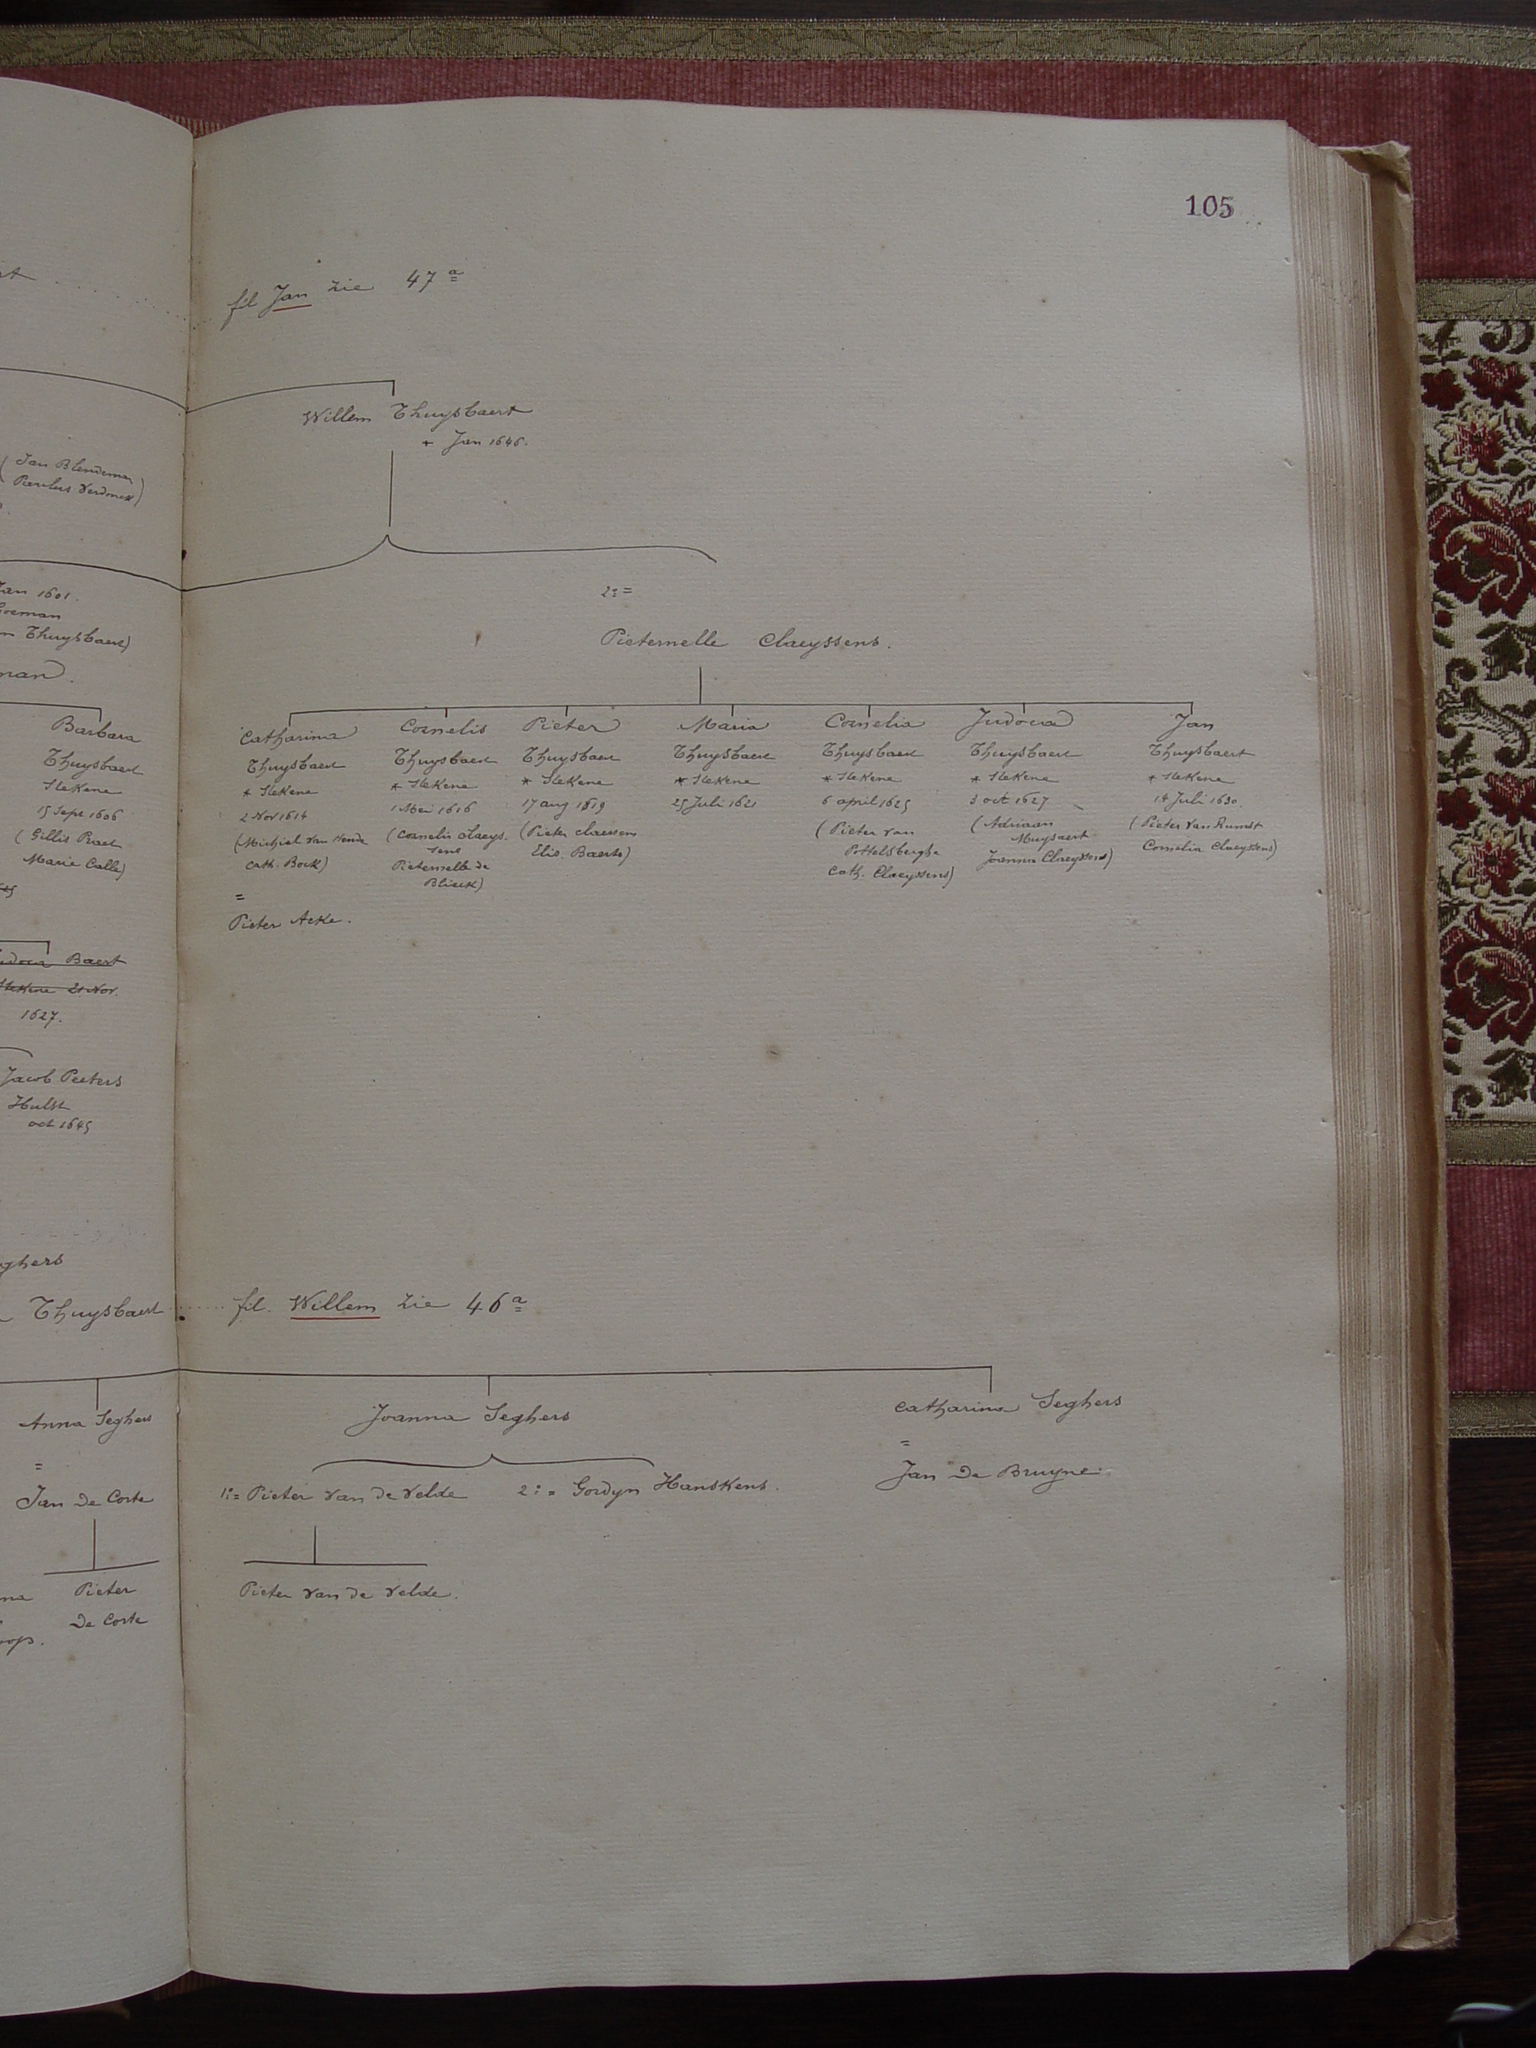 105
fil Jan zie 47 a
Willem Thuysbaert
+ Jan 1646.
(Jan Blendeman
Paulus Verdonck)
Jan 1601.
2: =
Thuysbaert)
Pieternelle Claeyssens.
Barbara
Thuysbaert
Stekene
15 Sept 1606
(Gillis Baert
Marie Calle)
Catharina
Thuysbaert
* Stekene
2 Nov 1614
(Michiel van
Cath. Bock)
=
Pieter Acke.
Cornelis
Thuysbaert
* Stekene
1 Mei 1616
(Cornelis Claeys
sens
Pieternelle de
Blieck)
Pieter
Thuysbaert
* Stekene
17 aug 1619
(Pieter Claessens
Elis. Baerts)
Maria
Thuysbaert
* Stekene
25 Juli 1621
Cornelia
Thuysbaert
* Stekene
6 april 1625
(Pieter van
Pottelsberghe
Cath. Claeyssens)
Judoca
Thuysbaert
* Stekene
3 oct 1627
(Adriaan
Muysaert
Joanna Claeyssens)
Jan
Thuysbaert
* Stekene
14 Juli 1630.
(Pieter Van Rumst
Cornelia Claeyssens)
Baert
Stekene 21 Nov.
1627.
Jacob Peeters
Hulst
oct 1645
Thuysbaert
fil. Willem zie 46 a
Anna Seghers
=
Jan De Corte
Pieter
De Corte
Joanna Seghers
1: = Pieter Van de Velde 2: = Gordyn Hanskens.
Pieter Van de Velde.
Catharina Seghers
=
Jan De Bruyne